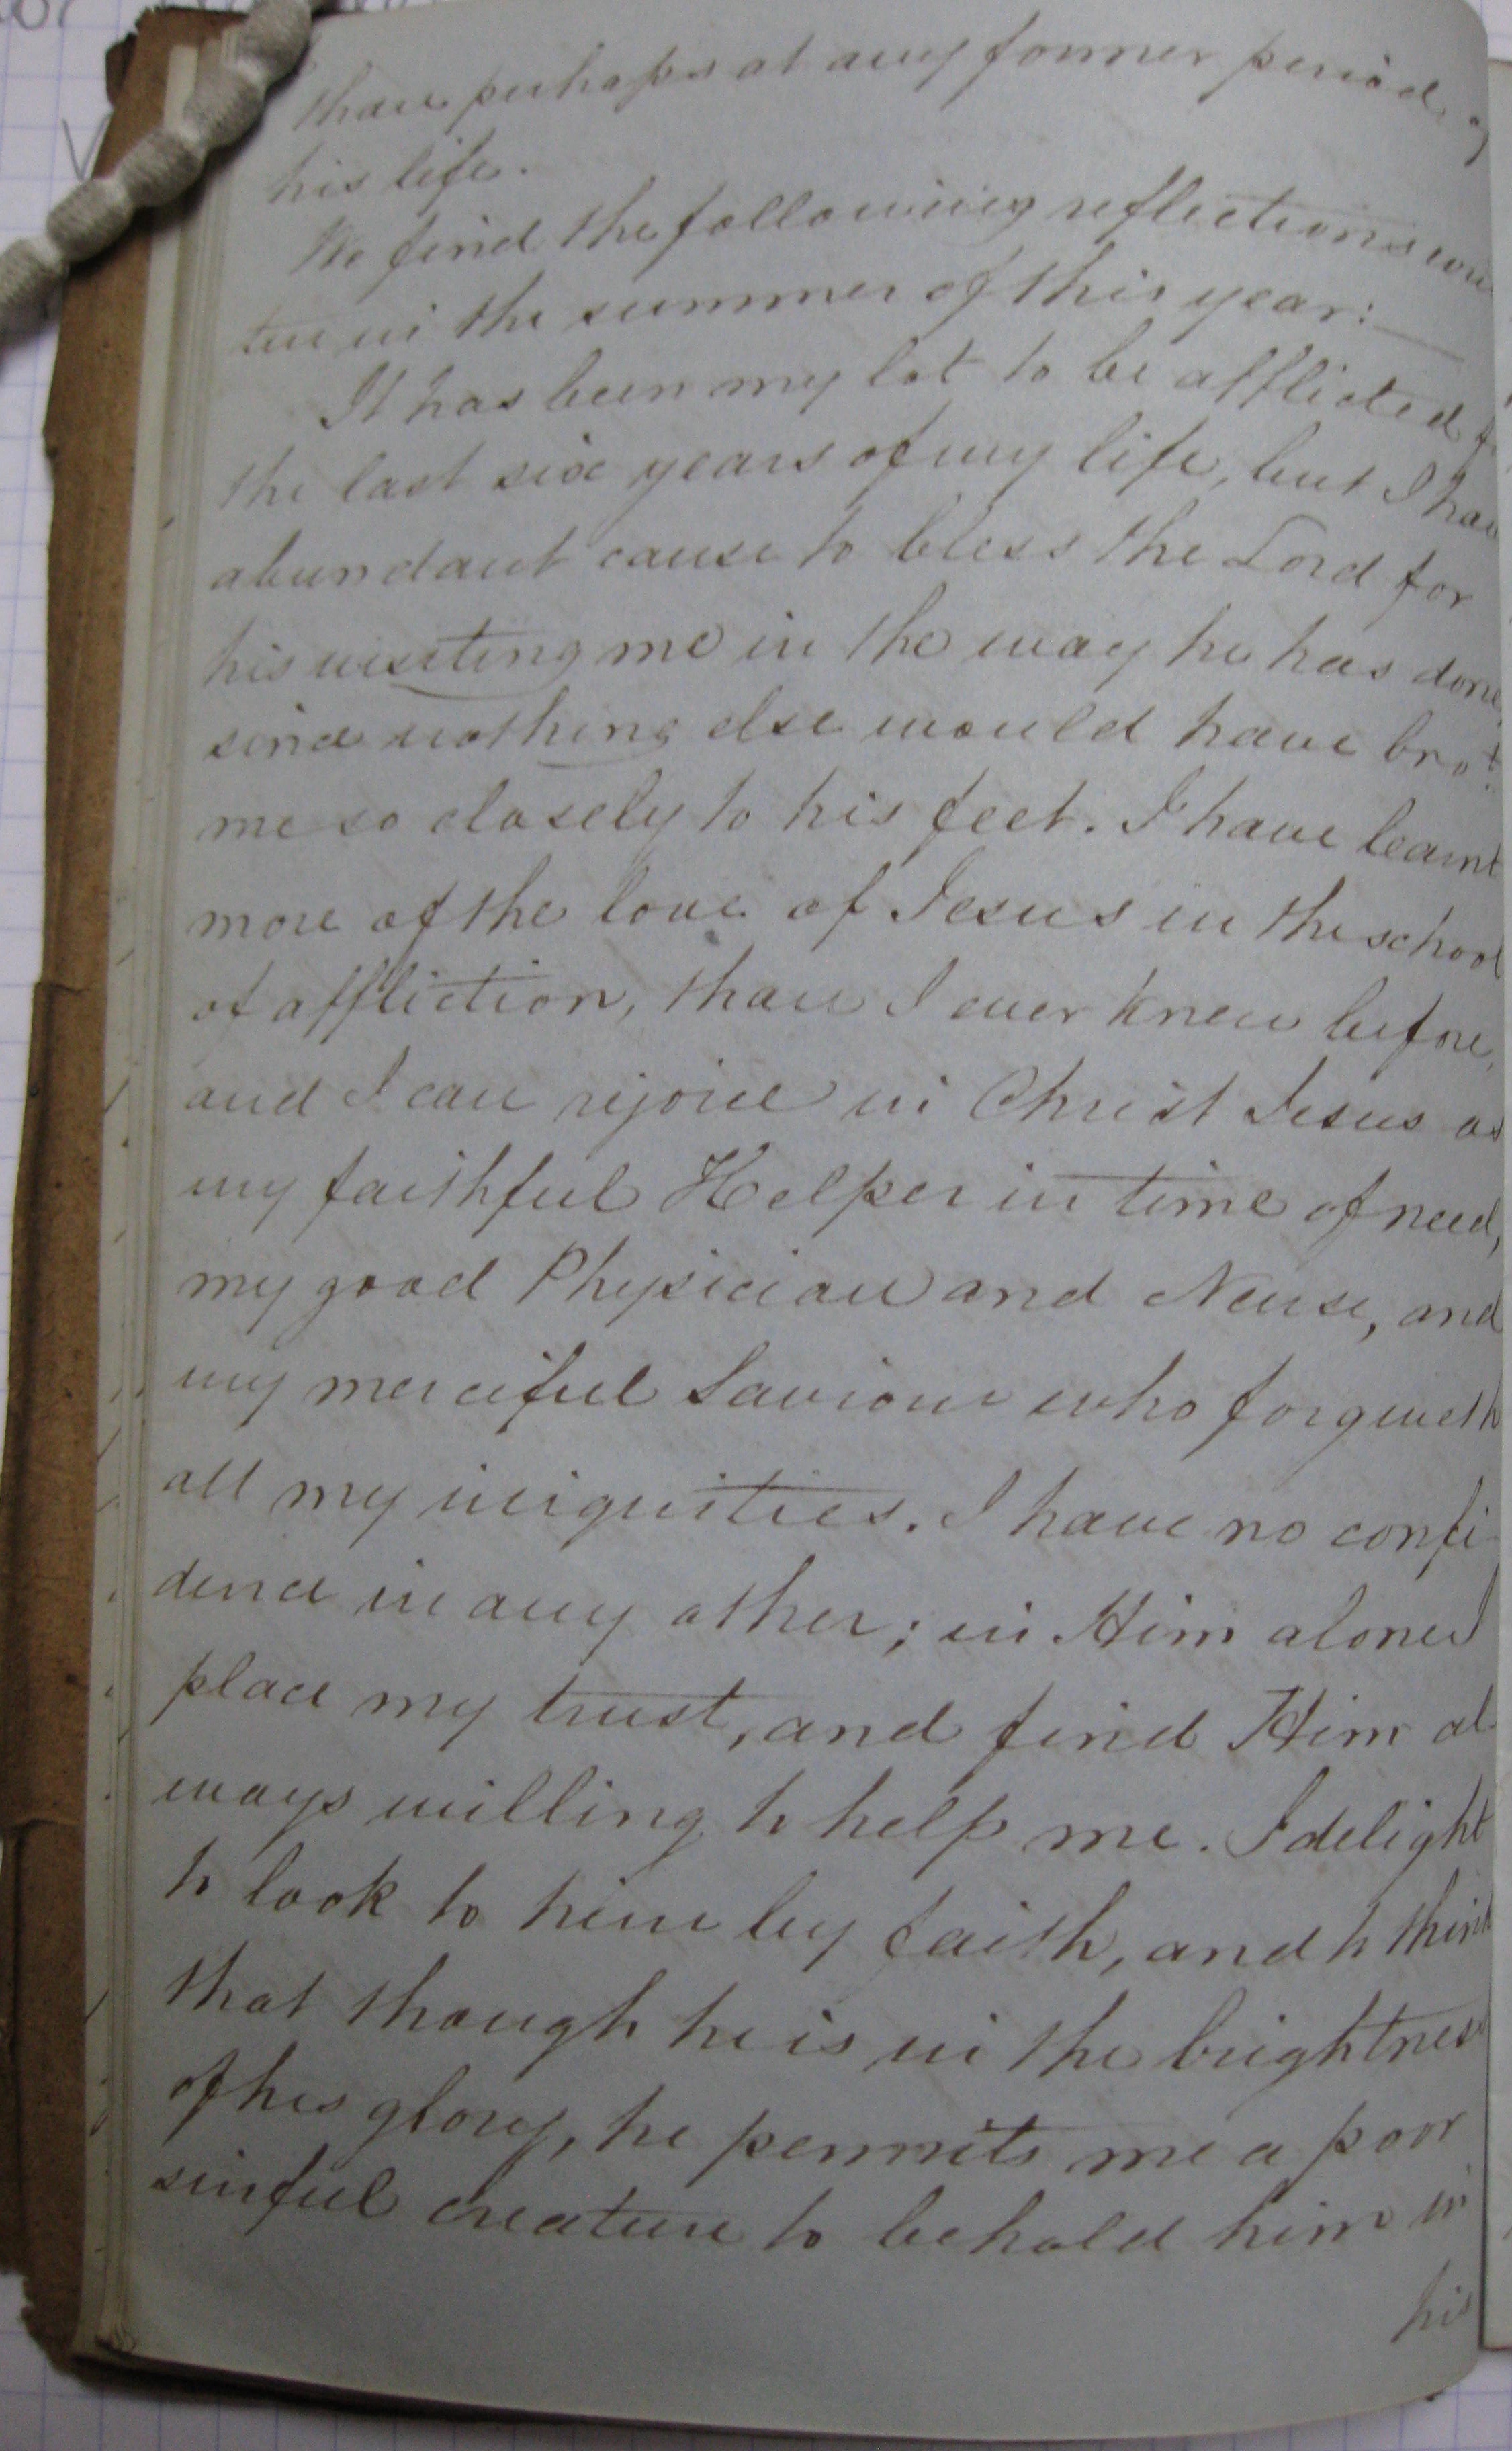 than perhaps at any former period of
his life.
We find the following reflections writ
ten in the summer of this year:—
It has been my lot to be afflicted
the last six years of my life, but I have
abundant cause to bless the Lord for
his visiting me in the way he has done,
since nothing else would have bro.t
me so closely to his feet. I have learnt
more of the love of Jesus in the school
of affliction, than I ever knew before,
and I can rejoice in Christ Jesus as
my faithful Helper in time of need,
my good Physician and Nurse, and
my merciful Saviour who forgiveth
all my iniquities. I have no confi
dence in any other; in Him alone I
place my trust, and find Him al
ways willing to help me. I delight
to look to him by faith, and to think
that though he is in the brightness
of his glory, he permits me a poor
sinful creature to behold him in
his